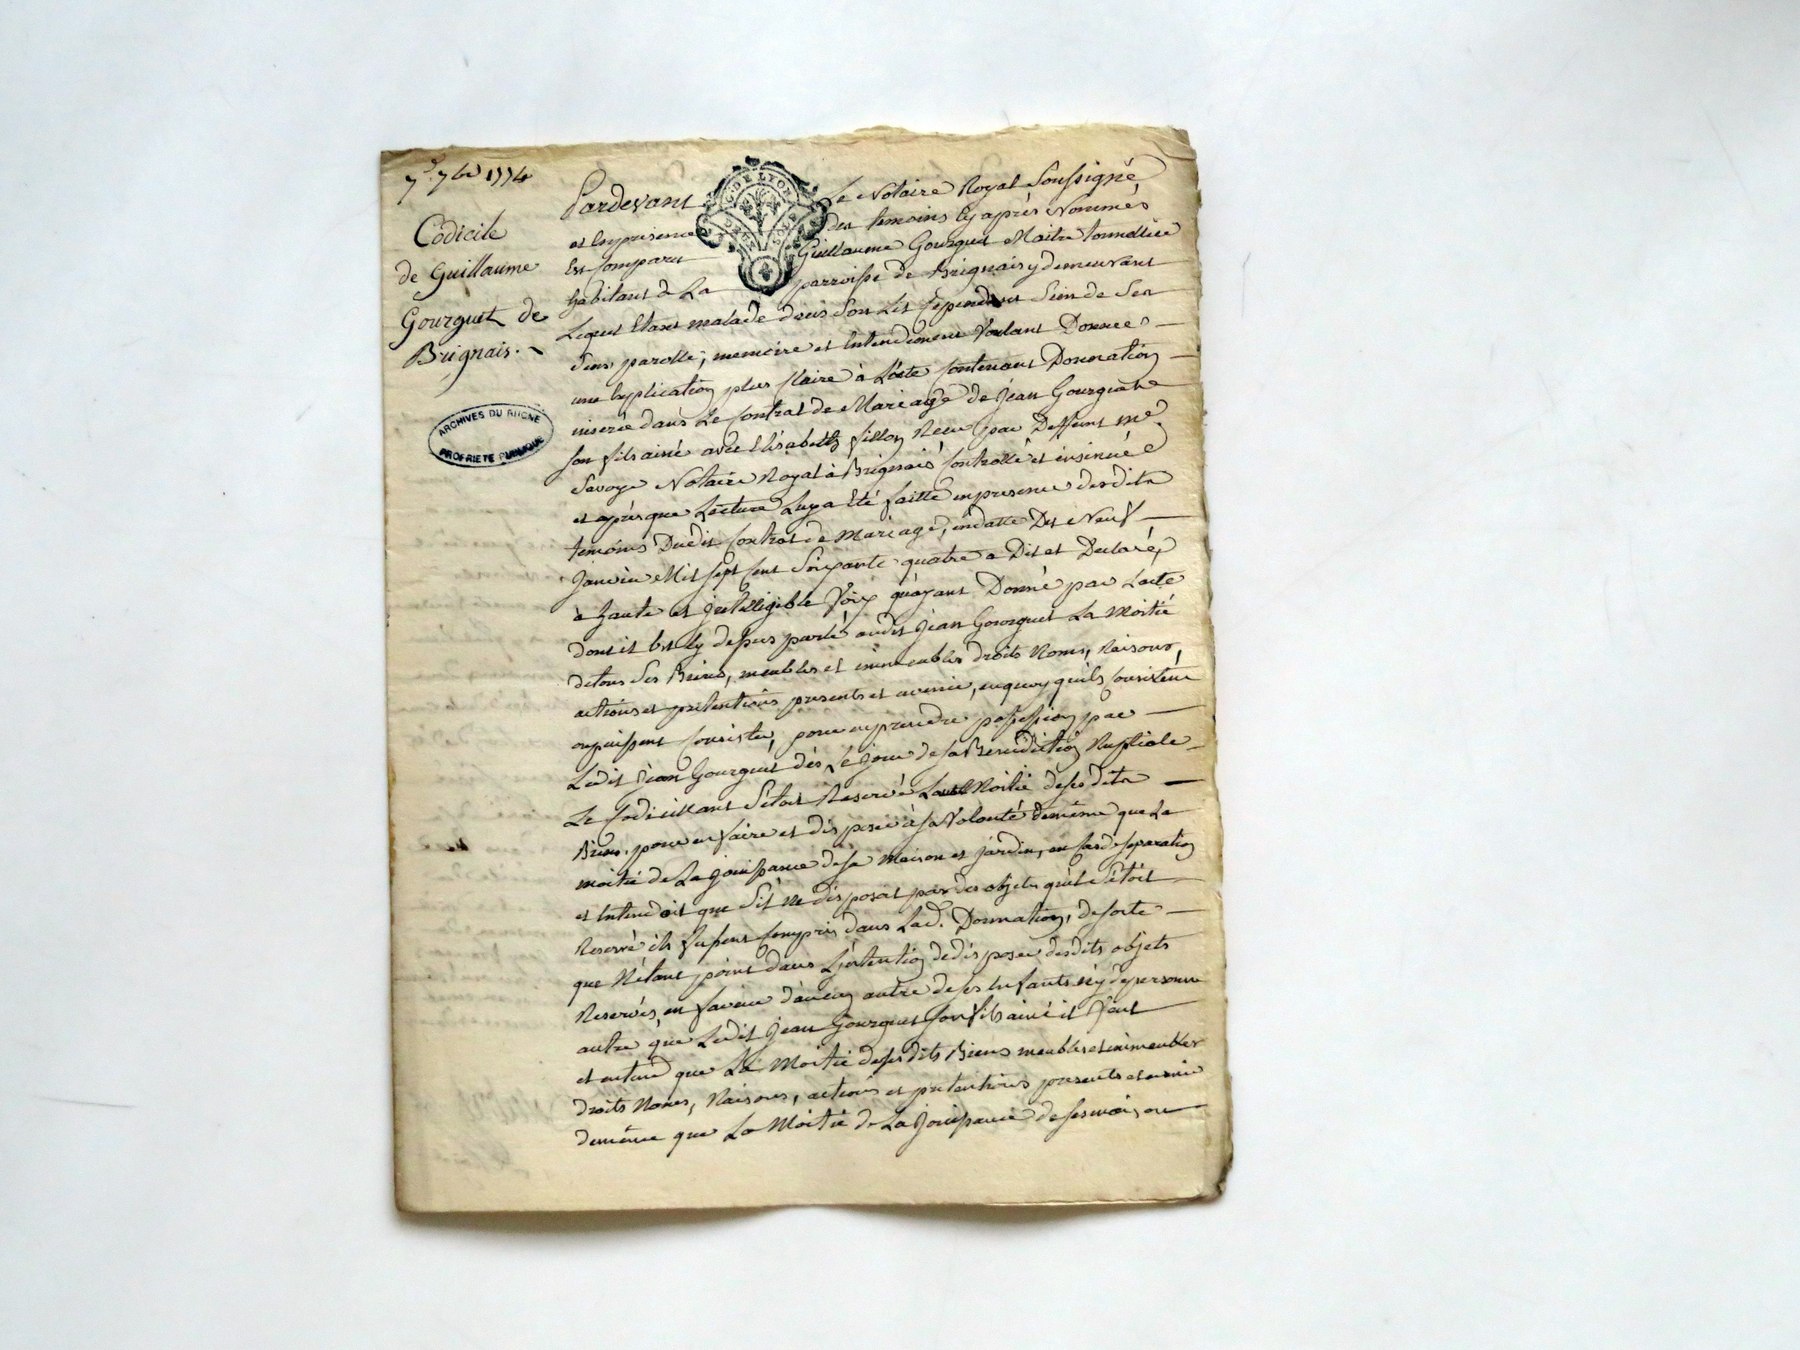 7e 7bre 1774
Codicile
de Guillaume
Gourguet de
Brignais.
ARCHIVES DU RHONE
PROPRIETE PUBLIQUE
G. DE LYON
Pardevant Le Notaire Royal Soussigné,
et En presence des temoins Cy après Nommés
Est Comparu Guillaume Gourguet Maitre tonnellier
habitant de La parroisse de Brignais y demeurant
Lequel Etant malade dans Son Lit Cependant Sein de Ses
Sens parolle, memoire et Entendement Voulant Donner
une Explication plus Claire à L'acte Contenant Donnation
inserée dans Le Contrat de Mariage de Jean Gourguet
Son fils ainé avec Elisabeth fillon Receu par Deffunt Me.
Savoye Notaire Royal à Brignais Controllé et insinué
et après que Lecture Luy a Eté faitte en presence desdits
temoins Dudit Contrat de Mariage, en datte Dix Neuf
Janvier Mil Sept Cent Soixante quatre a Dit et Declaré,
à haute et jntelligible Voix qu'ayant Donné par L'acte
dont il Est Cy dessus parlé audit Jean Gourguet La Moitié
de tous Ses Biens, meubles et immeubles droits Noms, Raisons,
actions et prétentions presents et avenir, en quoy qu'ils Consistent
ou puissent Consister, pour en prendre possession par
Ledit Jean Gourguet dès Le Jour de sa Benediction Nuptiale
Le Codicillant S'étoit Reservé Moitié de ses dits
Biens pour en faire et disposer à Sa Volonté de même que La
moitié de La Jouissance de Sa Maison et jardin, en Cas de Separation
et Entendoit que S'il ne disposoit pas des objets qu'il S'étoit
Reservé ils fussent Compris dans Lad. Donnation, de Sorte
que N'étant point dans L'jntention de disposer desdits objets
Reservés, en faveur d'aucun autre de ses Enfants ny de personne
autre, que Ledit Jean Gourguet Son fils ainé il Veut
et entend que La Moitié de Ses dits Biens meubles et immeubles
droits Noms, Raisons, actions et prétentions presents et avenir
de même que La Moitié de La Jouissance de Ses maison